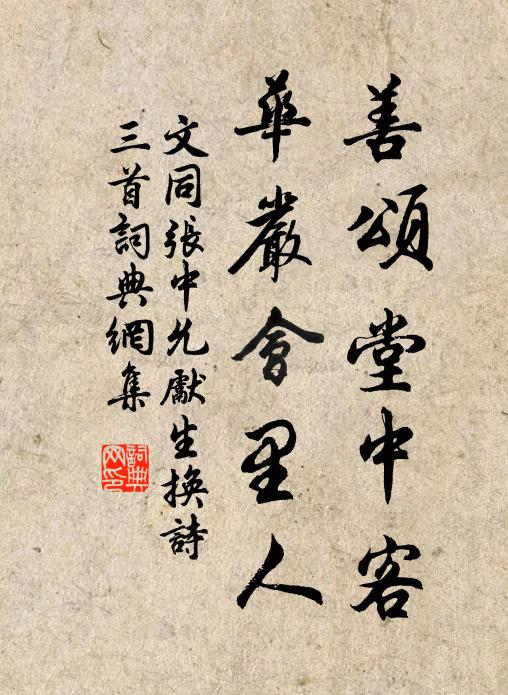 善頌堂中客
華嚴會里人
文同張中允獻生換詩
三首詞典網集
詞典网印